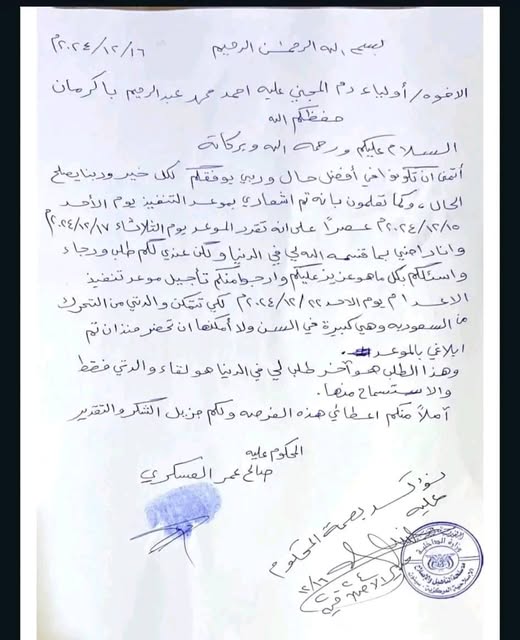 بسم الله الرحمن الرحيم ٢٠٢٤/١٢/١٦م
الاخوه/ أولياء دم المجني عليه احمد محمد عبدالرحيم باكرمان
حفظكم الله
السلام عليكم ورحمة الله وبركاتة
أتمنى ان تكونوا في أفضل حال وربي يوفقكم لكل خير وربنا يصلح
الحال، وكما تعلمون بانه تم اشعاري بموعد التنفيذ يوم الأحد
٢٠٢٤/١٢/١٥م عصراً على انه تقرر الموعد يوم الثلاثاء ٢٠٢٤/١٢/١٧م
وانا راضي بما قسمه الله لي في الدنيا ولكن عندي لكم طلب ورجاء
واسئلكم بكل ما هو عزيز عليكم وارجوا منكم تأجيل موعد تنفيذ
الاعدام يوم الاحد ٢٠٢٤/١٢/٢٢م لكي تتمكن والدتي من التحرك
من السعوديه وهي كبيرة في السن ولا أمكنها ان تحضر منذ ان تم
ابلاغي بالموعد.
وهذا الطلب هو آخر طلب لي في الدنيا هو لقاء والدتي فقط
والاستسماح منها.
آملاً منكم اعطائي هذه الفرصه ولكم جزيل الشكر والتقدير
المحكوم عليه
صالح عمر العسكري
نؤكد بصمة المحكوم
عليه
وزارة الداخلية